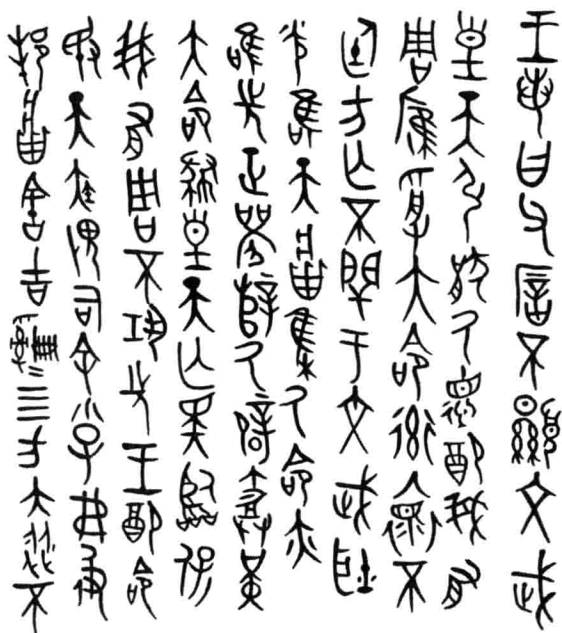 王若曰父厝不顯文武
皇天引猒厥德配我有
周膺受大命率懷不
廷方亡不閈于文武耿
光唯天將集厥命亦
唯先正襄辥厥辟勞堇
大命肆皇天亡斁臨保
我有周不鞏先王配命
敃天疾畏司余小子弗彶
邦將害吉四方大縱不